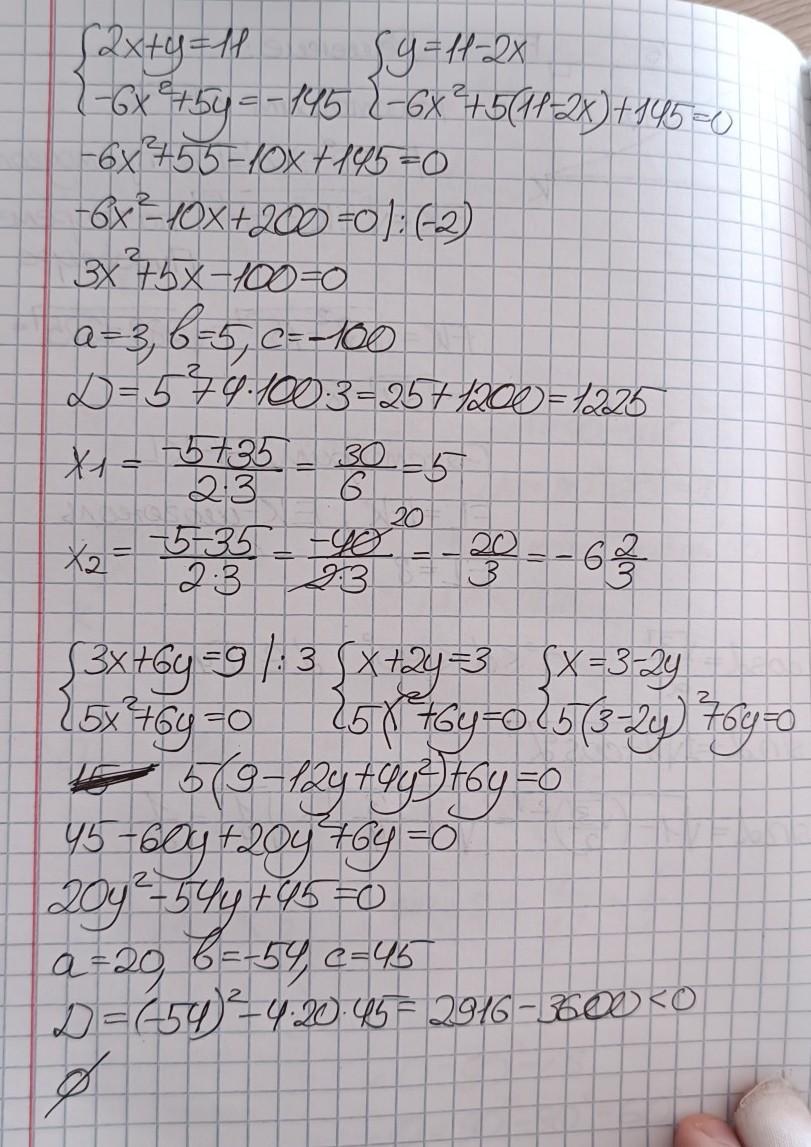 {2x+y=11 {y=11-2x
{-6x²+5y=-145 {-6x²+5(11-2x)+145=0
-6x²+55-10x+145=0
-6x²-10x+200=0|:(-2)
3x²+5x-100=0
a=3, b=5, c=-100
D=5²+4·100·3=25+1200=1225
x1 = (-5+35)/(2·3) = 30/6 = 5
x2 = (-5-35)/(2·3) = (-40 20)/(2·3) = -20/3 = -6 2/3
{3x+6y=9 |:3 {x+2y=3 {x=3-2y
{5x²+6y=0 {5x²+6y=0 {5(3-2y)²+6y=0
5(9-12y+4y²)+6y=0
45-60y+20y²+6y=0
20y²-54y+45=0
a=20, b=-54, c=45
D=(-54)²-4·20·45=2916-3600<0
∅